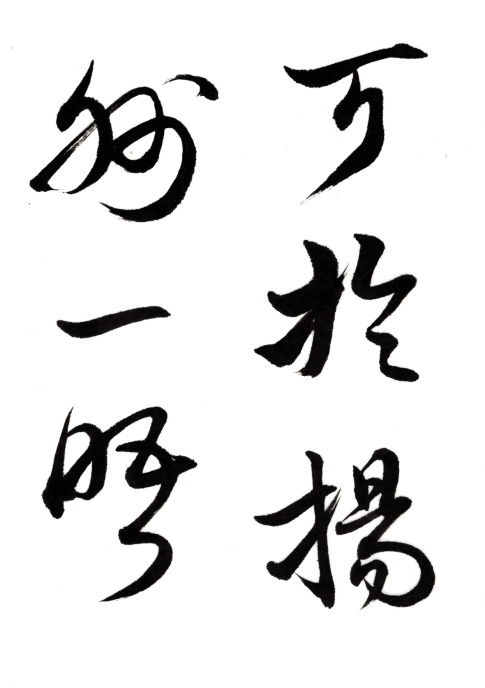 可於揚
州一晤